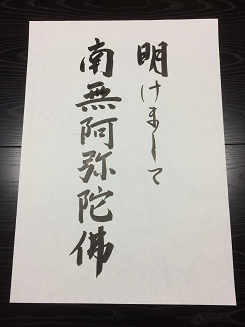 明けまして
南無阿弥陀佛